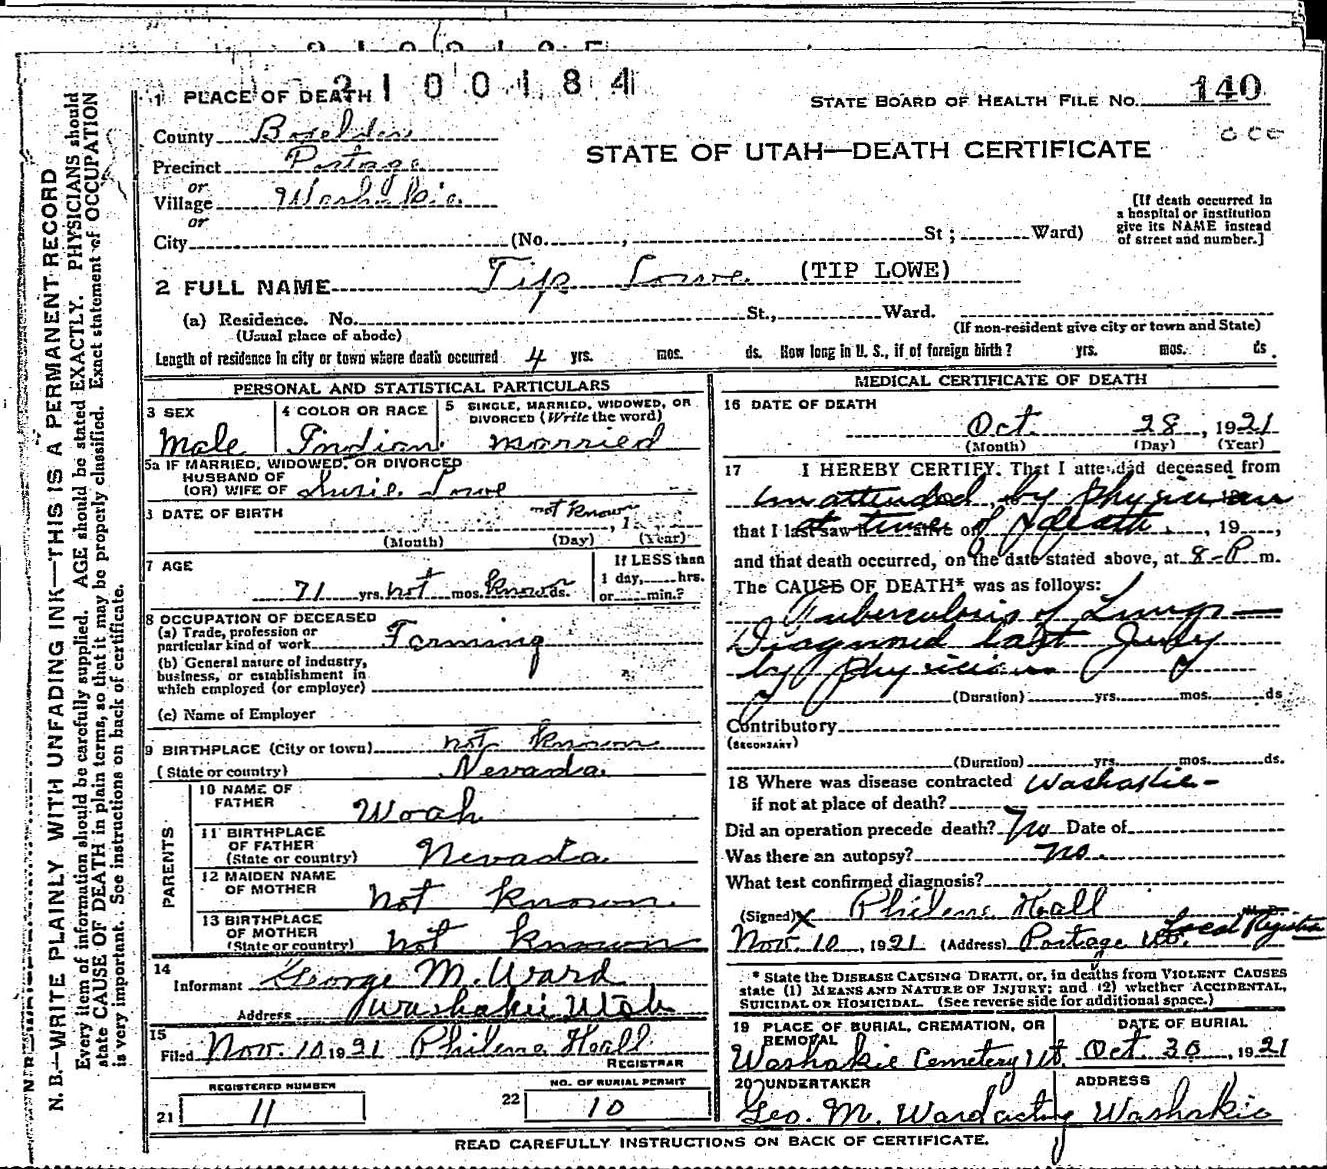 2100184
1 PLACE OF DEATH
STATE BOARD OF HEALTH FILE NO. 140
County Boxelder
Precinct Portage
STATE OF UTAH—DEATH CERTIFICATE
or
Village Washakie
or
City (No. , St ; Ward)
[If death occurred in
a hospital or institution
give its NAME instead
of street and number.]
2 FULL NAME Tip Lowe (TIP LOWE)
(a) Residence. No. St., Ward.
(Usual place of abode)
(If non-resident give city or town and State)
Length of residence in city or town where death occurred 4 yrs. mos. ds. How long in U. S., if of foreign birth? yrs. mos. ds.
PERSONAL AND STATISTICAL PARTICULARS
3 SEX
Male
4 COLOR OR RACE
Indian
5 SINGLE, MARRIED, WIDOWED, OR
DIVORCED (Write the word)
married
5a IF MARRIED, WIDOWED, OR DIVORCED
HUSBAND OF
(OR) WIFE OF Susie Lowe
DATE OF BIRTH not known , 1
(Month) (Day) (Year)
7 AGE
71 yrs. not mos. known ds.
If LESS than
1 day, hrs.
or min.?
8 OCCUPATION OF DECEASED
(a) Trade, profession or
particular kind of work Farming
(b) General nature of industry,
business, or establishment in
which employed (or employer)
(c) Name of Employer
9 BIRTHPLACE (City or town) not known
(State or country) Nevada
PARENTS
10 NAME OF
FATHER Woah
11 BIRTHPLACE
OF FATHER
(State or country) Nevada
12 MAIDEN NAME
OF MOTHER not known
13 BIRTHPLACE
OF MOTHER
(State or country) not known
14
Informant George M. Ward
Address Washakie Utah
15
Filed Nov. 10 1921 Philene Hall
REGISTRAR
REGISTERED NUMBER
21 11
NO. OF BURIAL PERMIT
22 10
MEDICAL CERTIFICATE OF DEATH
16 DATE OF DEATH
Oct. 28, 1921
(Month) (Day) (Year)
17 I HEREBY CERTIFY, That I attended deceased from
unattended by physician
that I last saw h alive on , 19 ,
at time of death
and that death occurred, on the date stated above, at 8-P m.
The CAUSE OF DEATH* was as follows:
Tuberculosis of Lungs—
Diagnosed last July
by physician
(Duration) yrs. mos. ds
Contributory
(SECONDARY)
(Duration) yrs. mos. ds.
18 Where was disease contracted Washakie-
if not at place of death?
Did an operation precede death? No Date of
Was there an autopsy? no.
What test confirmed diagnosis?
(Signed) X Philene Hall M. D.
Local Registrar
Nov. 10, 1921 (Address) Portage Ut.
* State the DISEASE CAUSING DEATH, or, in deaths from VIOLENT CAUSES
state (1) MEANS AND NATURE OF INJURY; and (2) whether ACCIDENTAL,
SUICIDAL OR HOMICIDAL. (See reverse side for additional space.)
19 PLACE OF BURIAL, CREMATION, OR
REMOVAL
Washakie Cemetery Ut.
DATE OF BURIAL
Oct. 30, 1921
20 UNDERTAKER
Geo. M. Ward acting
ADDRESS
Washakie
READ CAREFULLY INSTRUCTIONS ON BACK OF CERTIFICATE.
N. B.—WRITE PLAINLY WITH UNFADING INK—THIS IS A PERMANENT RECORD
Every item of information should be carefully supplied. AGE should be stated EXACTLY. PHYSICIANS should
state CAUSE OF DEATH in plain terms, so that it may be properly classified. Exact statement of OCCUPATION
is very important. See instructions on back of certificate.